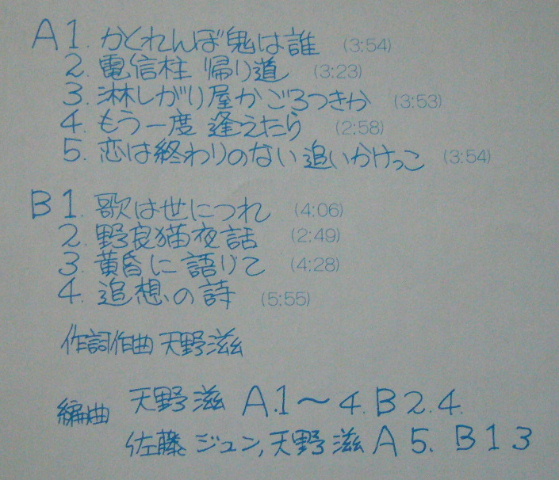 A 1. かくれんぼ 鬼は誰 (3:54)
2. 電信柱 帰り道 (3:23)
3. 淋しがり屋か ごろつきか (3:53)
4. もう一度 逢えたら (2:58)
5. 恋は終わりのない 追いかけっこ (3:54)
B 1. 歌は世につれ (4:06)
2. 野良猫夜話 (2:49)
3. 黄昏に 語りて (4:28)
4. 追想の詩 (5:55)
作詞作曲 天野滋
編曲 天野滋 A.1〜4. B2.4.
佐藤 ジュン, 天野滋 A5. B1 3